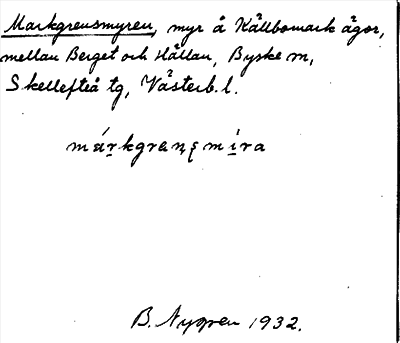 Markgrensmyren, myr å Källbomark ägor,
mellan Berget och Hällan, Byske m,
Skellefteå tg, Västerb. l.
márkgranęmira
B. Nygren 1932.